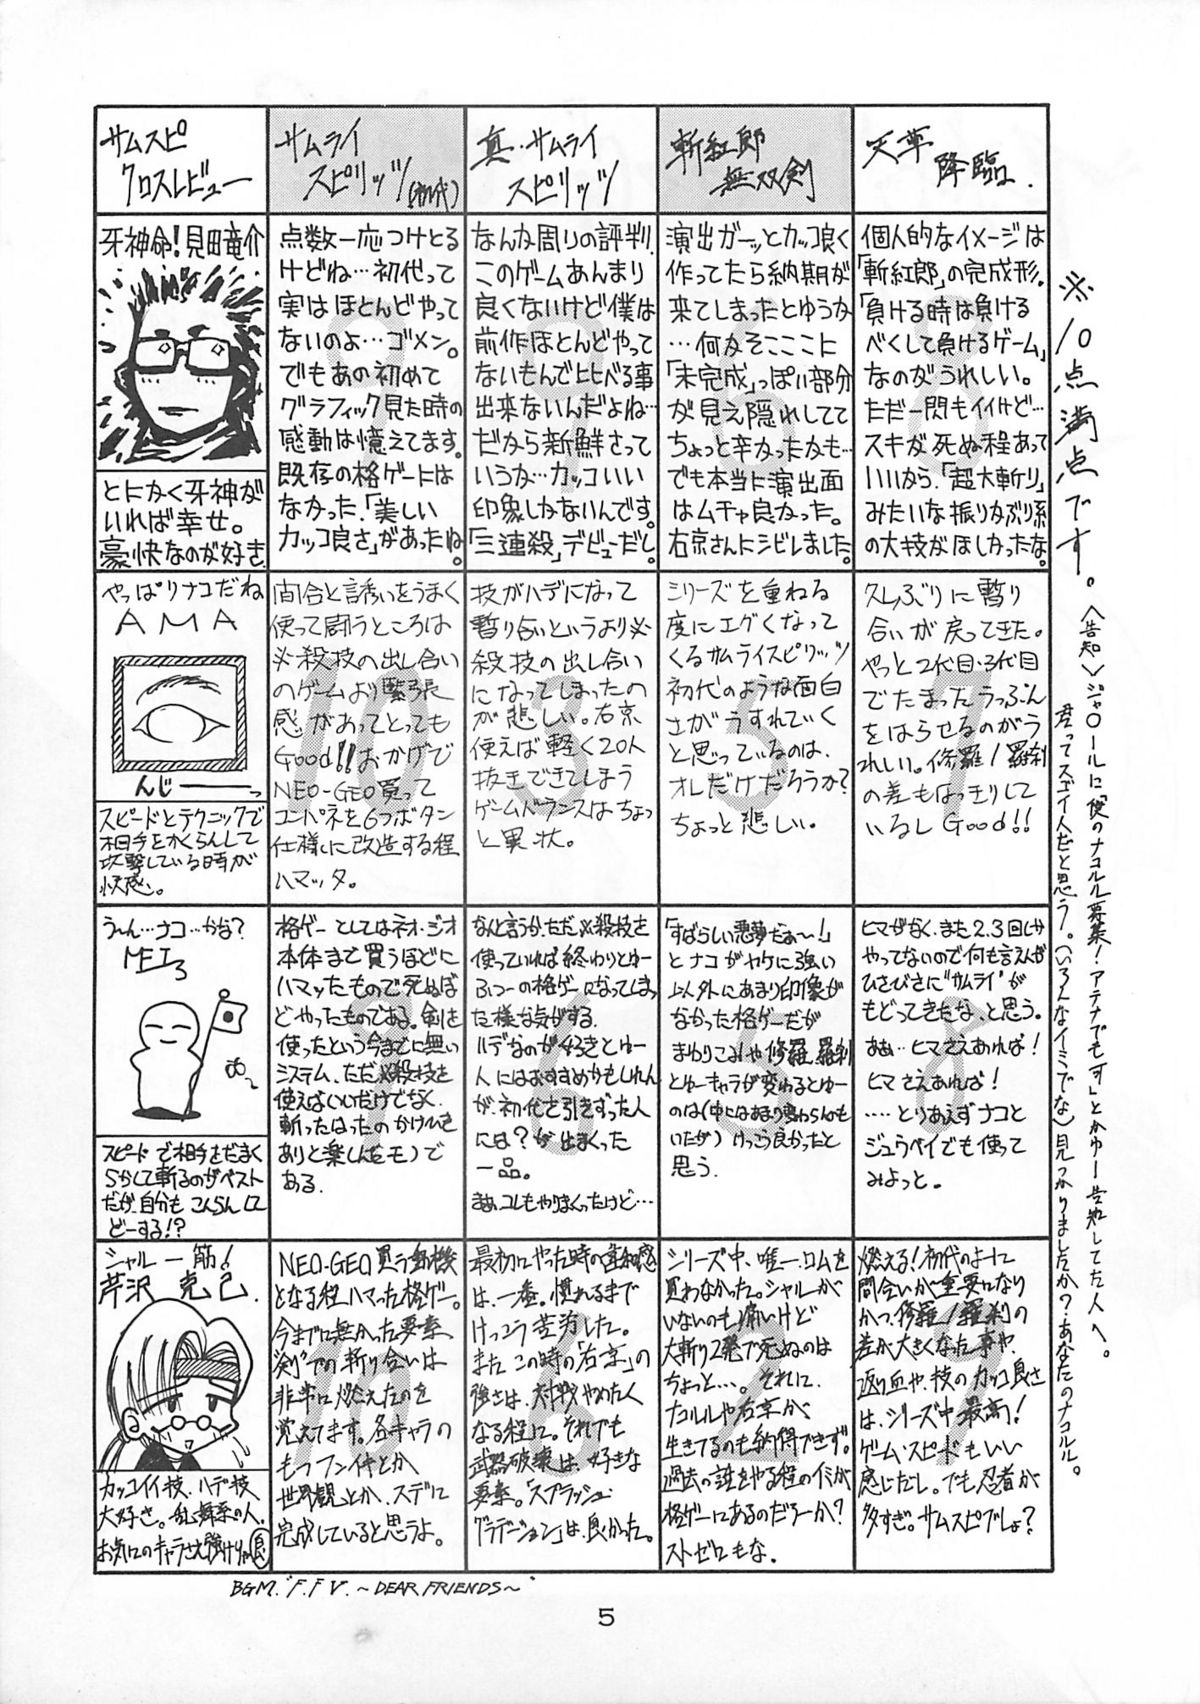 サムスピ
クロスレビュー
サムライ
スピリッツ(初代)
真・サムライ
スピリッツ
斬紅郎
無双剣
天草
降臨
牙神命!見田竜介
とにかく牙神が
いれば幸せ。
豪快なのが好き
9
点数一応つけとる
けどね…初代って
実はほとんどやって
ないのよ…ゴメン。
でもあの初めて
グラフィック見た時の
感動は憶えてます。
既存の格ゲーには
なかった、「美しい
カッコ良さ」があったね。
9
なんか周りの評判、
このゲームあんまり
良くないけど僕は
前作ほとんどやって
ないもんで比べる事
出来ないんだよね…
だから新鮮さって
いうか…カッコいい
印象しかないんです。
「三連殺」デビューだし。
6
演出ガーッとカッコ良く
作ってたら納期が
来てしまったとゆうか
…何かそこここに
「未完成」っぽい部分
が見え隠れしてて
ちょっと辛かったかも…
でも本当に演出面
はムチャ良かった。
右京さんにシビしました。
8
個人的なイメージは
「斬紅郎」の完成形。
「負ける時は負ける
べくして負けるゲーム」
なのがうれしい。
ただ一閃もイイけど…
スキが死ぬ程あって
いいから、「超大斬り」
みたいな振りかぶり系
の大技がほしかったな。
やっぱりナコだね
AMA
んじーーっ
スピードとテクニックで
相手をかくらんして
攻撃している時が
快感。
10
間合と誘いをうまく
使って闘うところは
必殺技の出し合い
のゲームより緊張
感があってとっても
Good!!おかげで
NEO-GEO買って
コンパネを6つボタン
仕様に改造する程
ハマッタ。
3
技がハデになって
斬り合いというより必
殺技の出し合い
になってしまったの
が悲しい。右京
使えば軽く20人
抜きできてしまう
ゲームバランスはちょっ
と異状。
5
シリーズを重ねる
度にエグくなって
くるサムライスピリッツ
初代のような面白
さがうすれていく
と思っているのは、
オレだけだろうか?
ちょっと悲しい。
7
久しぶりに斬り
合いが戻ってきた。
やっと2代目・3代目
でたまったうっぷん
をはらせるのがう
れしい。修羅/羅刹
の差もはっきりして
いるしGood!!
う〜ん…ナコ…かな?
スピードで相手をだまく
らかして斬るのがベスト
だが、自分もこんらんして
どーする!?
9
格ゲーとしてはネオ・ジオ
本体まで買うほどに
ハマッたもので死ぬほ
どやったものである。剣を
使ったという今までに無い
システム、ただ必殺技を
使えばいいだけでなく、
斬ったはったのかけひき
ありと楽しんだモノで
ある。
6
なんと言うか、ただ必殺技を
使っていれば終わりとゆー
ふつーの格ゲーになってしまっ
た様な気がする。
ハデなのが好きとゆー
人にはおすすめかもしれん
が、初代を引きずった人
には?が出まくった
一品。
まぁ、コレもやりまくったけど…
5
「すばらしい悪夢だぁ〜!」
とナコがヤケに強い
以外にあまり印象が
なかった格ゲーだが
まわりこみや修羅、羅刹
とゆーキャラが変わるとゆー
のは(中にはあまり変わらんのも
いたが)けっこう良かったと
思う。
8
ヒマがなく、また2.3回しか
やってないので何も言えんが
ひさびさに"サムライ"が
もどってきたな、と思う。
あぁ…ヒマさえあれば!
ヒマさえあれば!
……とりあえずナコと
ジュウベイでも使って
みよっと。
シャルー筋!
芹沢 克己.
カッコイイ技、ハデ技
大好き。乱舞系の人。
10
NEO-GEO買う動機
となる程ハマった格ゲー。
今までに無かった要素、
"剣"での斬り合いは
非常に燃えたのを
覚えてます。各キャラの
もつフンイキとか
世界観とか、スデに
完成していると思うよ。
6
最初にやった時の違和感
は、一番。慣れるまで
けっこう苦労した。
またこの時の「右京」の
強さは、対戦やめたく
なる程に。それでも
武器破壊は、好きな
要素。「スプラッシュ・
グラデーション」は、良かった。
2
シリーズ中、唯一ロムを
買わなかった。シャルが
いないのも痛いけど
大斬り2発で死ぬのは
ちょっと…。それに、
ナコルルや右京が
生きてるのも納得できず。
過去の話をやる程のイミが
格ゲーにあるのだろーか?
ストゼロもな。
9
燃える!初代のように
間合いが重要になり
かつ、修羅/羅刹の
差が大きくなった事や、
返り血や、技のカッコ良さ
は、シリーズ中最高!
ゲーム・スピードもいい
感じだし。でも忍者が
多すぎ。サムスピでしょ?
※10点満点です。
<告知>ジャ○ールに「僕のナコルル募集!アテナでも可」とかゆー告知してた人へ。
君ってスゴイ人だと思う。(いろんなイミでな)見つかりましたか?あなたのナコルル。
BGM."F.F V. 〜DEAR FRIENDS〜"
5